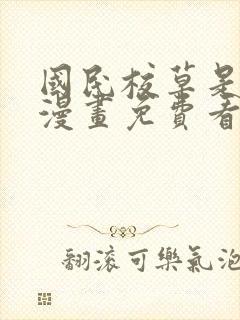 國民校草是
漫畫免費看
翻滾可樂氣泡